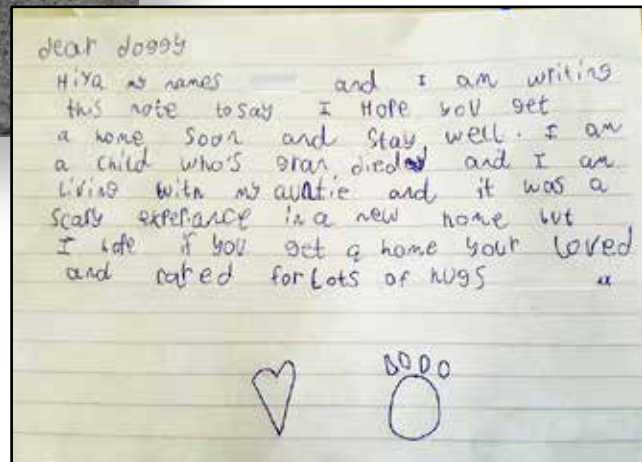 dear doggy
Hiya my names and I am writing
this note to say I Hope you get
a home soon and stay well. I am
a child who's gran died and I am
Living with my auntie and it was a
scary experiance in a new home but
I hope if you get a home your Loved
and cared for Lots of hugs